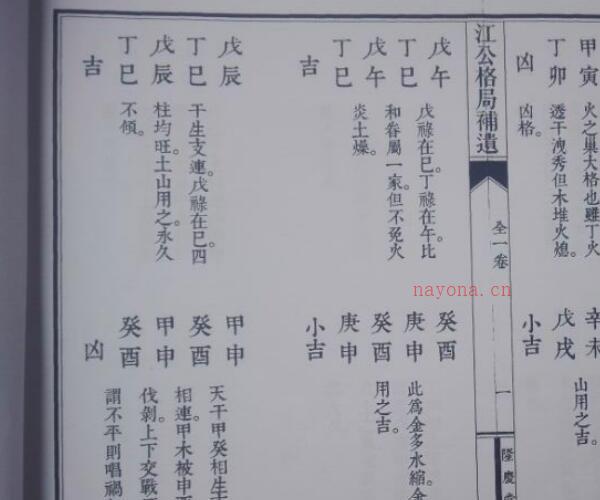 甲寅
丁卯
凶
火之巢大格也雖丁火
透干洩秀但木堆火熄。
凶格。
辛未
戊戌
小吉
山用之吉。
江公格局補遺
全一卷
一
隆慶
戊午
丁巳
戊午
丁巳
吉
戊祿在巳。丁祿在午比
和眷屬一家。但不免火
炎土燥。
戊辰
丁巳
戊辰
丁巳
吉
干生支連。戊祿在巳。四
柱均旺。土山用之。永久
不傾。
癸酉
庚申
癸酉
庚申
小吉
此為金多水縮。金
用之吉。
甲申
癸酉
甲申
癸酉
凶
天干甲癸相生
相連。甲木被申
伐剝。上下交戰
謂不平則唱禍
nayona.cn